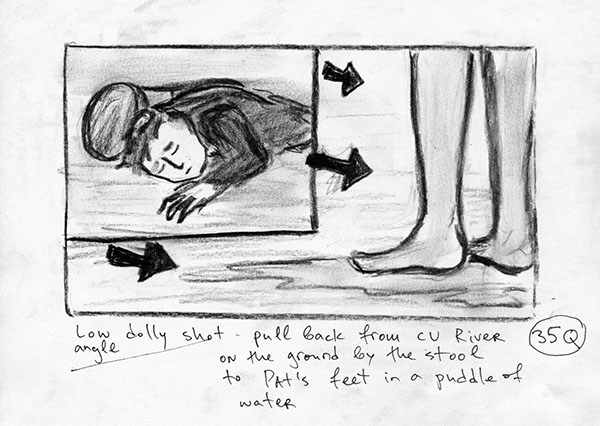 Low dolly shot - pull back from CU River
angle
on the ground by the stool
to Pat's feet in a puddle of
water
35Q